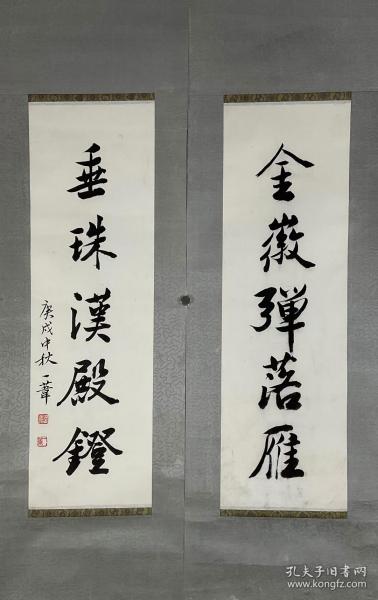 金徽彈落雁
垂珠漢殿鐙
庚戌中秋 一葦
孔夫子旧书网
www.kongfz.com